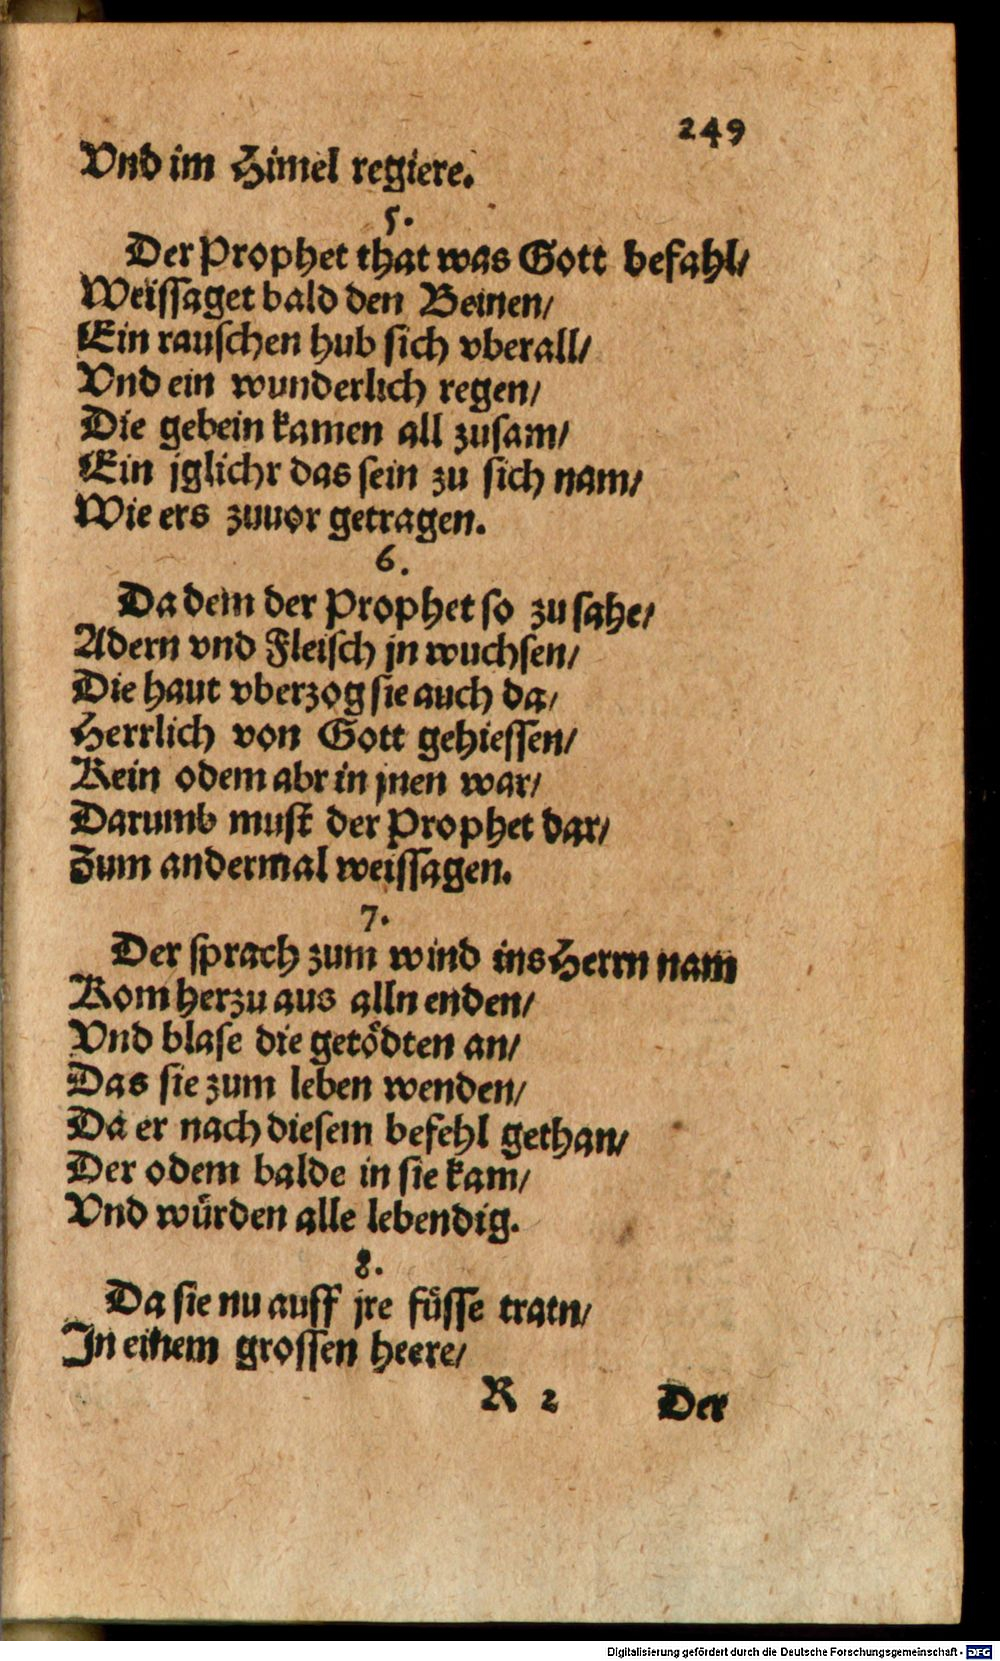 249
Vnd im Himel regiere.
5.
Der Prophet that was Gott befahl/
Weissaget bald den Beinen/
Ein rauschen hub sich vberall/
Vnd ein wunderlich regen/
Die gebein kamen all zusam/
Ein jglichr das sein zu sich nam/
Wie ers zuuor getragen.
6.
Da dem der Prophet so zu sahe/
Adern vnd Fleisch jn wuchsen/
Die haut vberzog sie auch da/
Herrlich von Gott gehiessen/
Kein odem abr in jnen war/
Darumb must der Prophet dar/
Zum andermal weissagen.
7.
Der sprach zum wind ins Herrn nam
Kom herzu aus alln enden/
Vnd blase die getödten an/
Das sie zum leben wenden/
Da er nach diesem befehl gethan/
Der odem balde in sie kam/
Vnd würden alle lebendig.
8.
Da sie nu auff jre füsse tratn/
In einem grossen heere/
R 2 Der
Digitalisierung gefördert durch die Deutsche Forschungsgemeinschaft - DFG